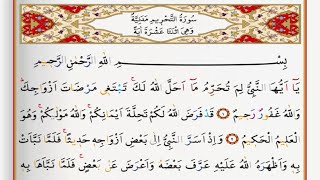 سُورَةُ التَّحْرِيمِ مَدَنِيَّةٌ
وَهِيَ اثْنَتَا عَشْرَةَ آيَةً
بِسْمِ اللّٰهِ الرَّحْمٰنِ الرَّحِيمِ
يَآ اَيُّهَا النَّبِيُّ لِمَ تُحَرِّمُ مَآ اَحَلَّ اللّٰهُ لَكَۚ تَبْتَغ۪ي مَرْضَاتَ اَزْوَاجِكَۜ
وَاللّٰهُ غَفُورٌ رَح۪يمٌ ١ قَدْ فَرَضَ اللّٰهُ لَكُمْ تَحِلَّةَ اَيْمَانِكُمْۚ وَاللّٰهُ مَوْلٰيكُمْۚ وَهُوَ
الْعَل۪يمُ الْحَك۪يمُ ٢ وَاِذْ اَسَرَّ النَّبِيُّ اِلٰى بَعْضِ اَزْوَاجِه۪ حَد۪يثًاۚ فَلَمَّا نَبَّاَتْ
بِه۪ وَاَظْهَرَهُ اللّٰهُ عَلَيْهِ عَرَّفَ بَعْضَهُ وَاَعْرَضَ عَنْ بَعْضٍۚ فَلَمَّا نَبَّاَهَا بِه۪